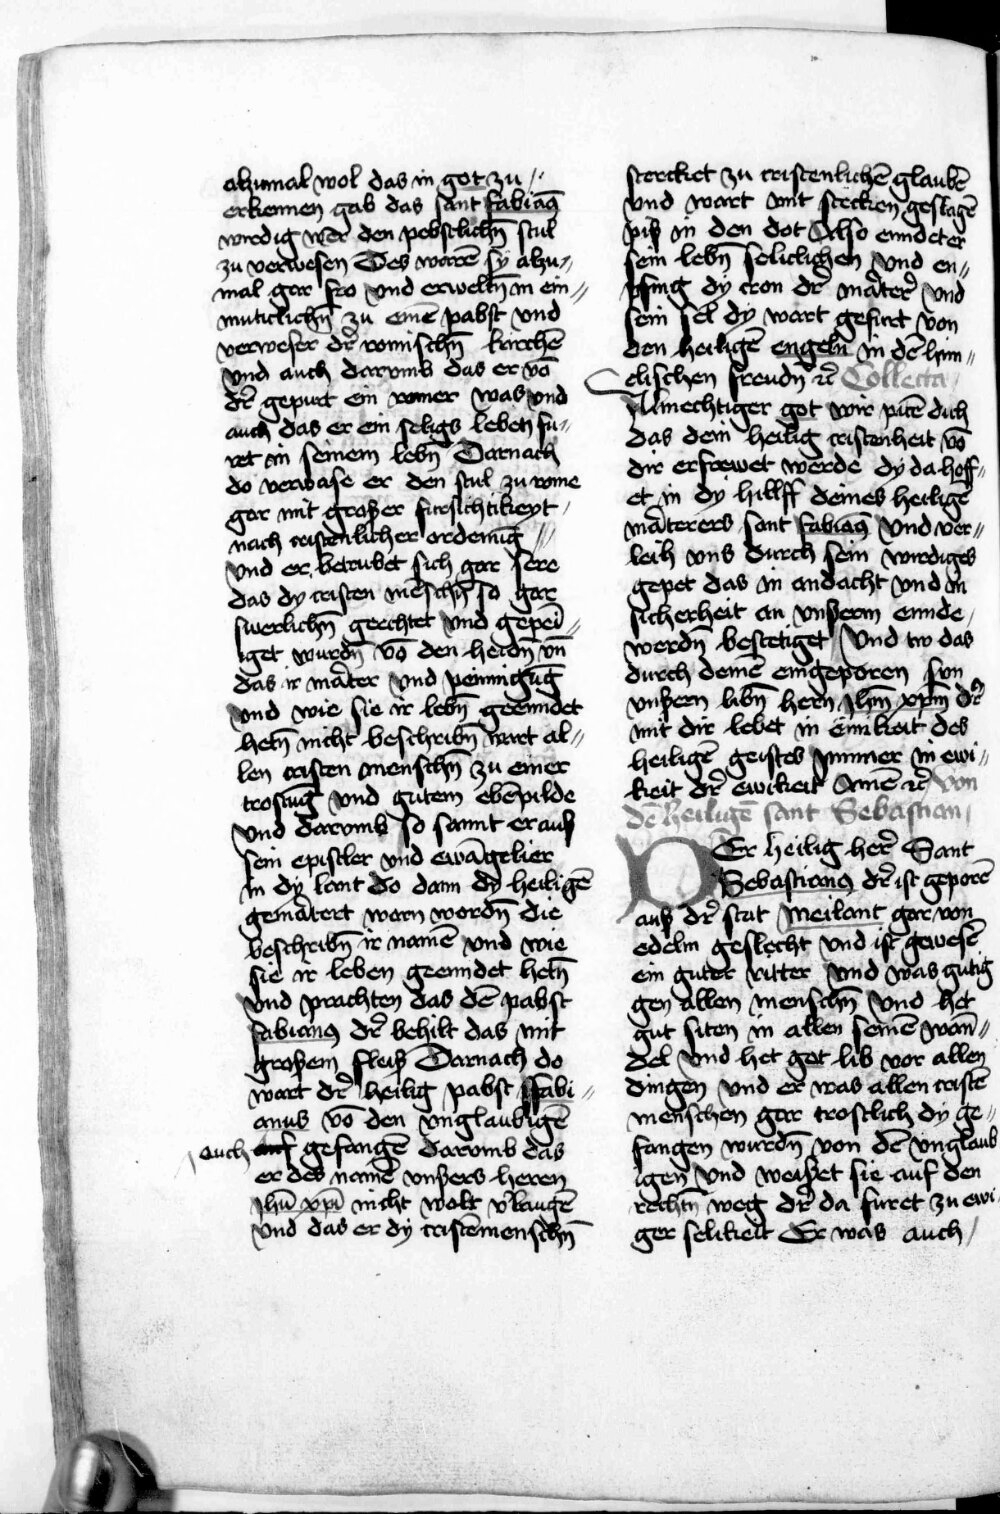 alzumal wol das in got zu
erkennen gab das sant fabiāꝰ
wirdig wer den pebstlichn̄ stul
zu verwesen Des warē sy alzu⸗
mal gar fro vnd erweltn̄ in ein⸗
muticlichn̄ zu einē pabst vnd
verweser dr̄ romischn̄ kirchē
vnd auch darvmb das er vō
dr̄ gepurt ein romer was vnd
auch das er ein seligs leben fu⸗
ret in seinem lebn̄ Darnach
do verwase er den stul zu rome
gar mit großer fursichtikeyt
nach cristenlicher ordenūg
vnd er betrubet sich gar sere
das dy cristen mēschn̄ so gar
swerlichn̄ gerchtet vnd gepei⸗
iget wurdn̄ vō den heidn̄ vn̄
das ir māter vnd peinnigūg
vnd wie sie ir lebn̄ geenndet
hetn̄ nicht beschribn̄ wart al⸗
len cristen menschn̄ zu einer
trostūg vnd gutem ebēpilde
vnd darvmb so sannt er auß
sein epistler vnd ewāgelier
in dy lant do dann dy heiligē
gemātert warn wordn̄ die
beschribn̄ ir namē vnd wie
sie ir leben geenndet hetn̄
vnd prachten das dē pabst
fabianꝰ dr̄ behilt das mit
großem fleiß Darnach do
wart dr̄ heilig pabst fabi⸗
anus vō den vnglaubigē
auch gefangē darvmb das
er des namē vnsers heren
jhū xpī nicht wolt v̄laugē
vnd das er dy cristēmenschn̄
stercket zu cristenlichē glaubē
vnd wart mit stecken geslagē
piß in den dot Also enndeter
sein lebn̄ seliclichen vnd en⸗
pfing dy cron dr̄ māterr̄ vnd
sein sel dy wart gefurt von
den heiligē engeln in dē him⸗
elischen freudn̄ ꝛc̄ Collecta
Almechtiger got wir pitē dich
das dein heilig cristenheit vō
dir erfrewet werde dy da hoff⸗
et in dy hillff deines heiligē
māterers sant fabiāꝰ vnd ver⸗
leih vns durch sein wirdiges
gepet das in andacht vnd in
sicherheit an vnserm ennde
werdn̄ bestetiget vnd tw das
durch deinē eingeporen sun
vnsern libn̄ hern jhm̄ xpm̄ dr̄
mit dir lebet in einikeit des
heiligē geistes ymmer in ewi⸗
keit dr̄ ewikeit Amē ꝛc̄ Von
dē heiligē sant Sebastian
DEr heilig herr̄ Sant
Sebastianꝰ dr̄ ist geporē
auß dr̄ stat Meilant gar von
edelm geslecht vnd ist gewesē
ein guter ritter vnd was gutig
gen allen menschn̄ vnd het
gut siten in allen seinē wan̄⸗
del vnd het got lib vor allen
dingen vnd er was allen cristē
menschen gar trostlich dy ge⸗
fangen wurdn̄ von dē vnglaub
igen vnd weißet sie auf den
rechtn̄ weg dr̄ da furet zu ewi
ger selikeit Er was auch